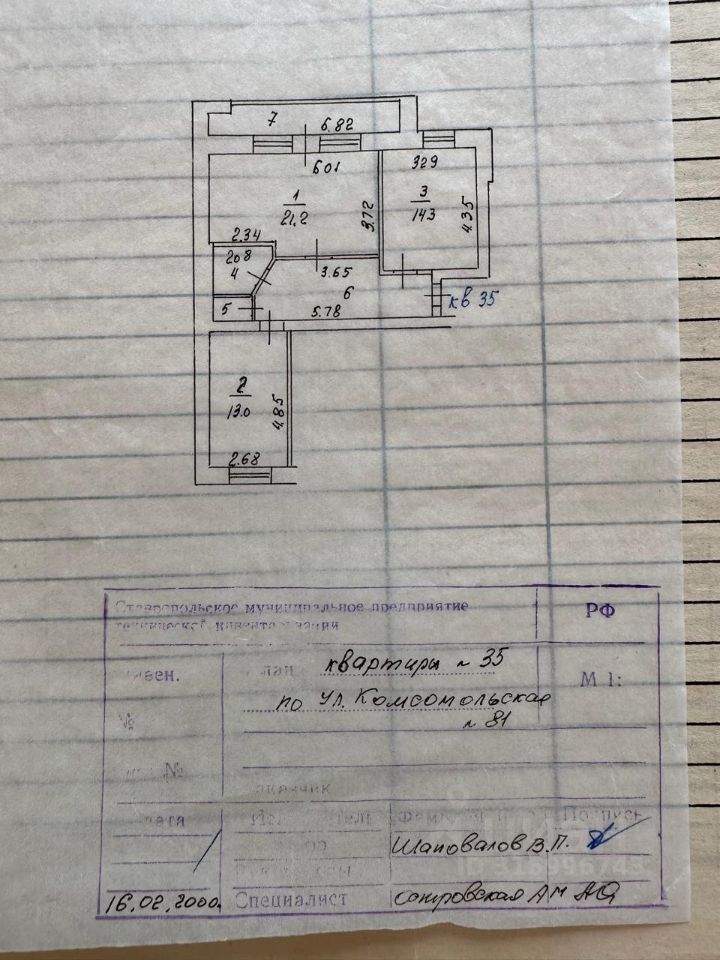 7
6.82
6.01
3.29
1
21.2
3.72
3
14.3
4.35
2.34
2.08
4
3.65
6
5
5.78
кв 35
2
13.0
4.85
2.68
Ставропольское муниципальное предприятие
технической инвентаризации
РФ
квартиры № 35
М 1:
по ул. Комсомольская
№
№ 81
№
Шаповалов В.П.
16.02.2000.
Специалист